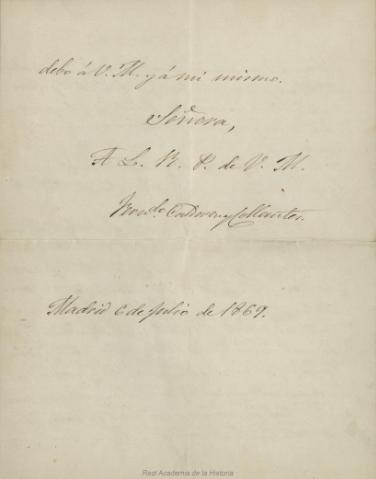 debo á V. M. y á mi mismo.
Señora,
A L. R. P. de V. M.
Fern.do Calderon y Collantes.
Madrid 6 de Julio de 1869.
Real Academia de la Historia